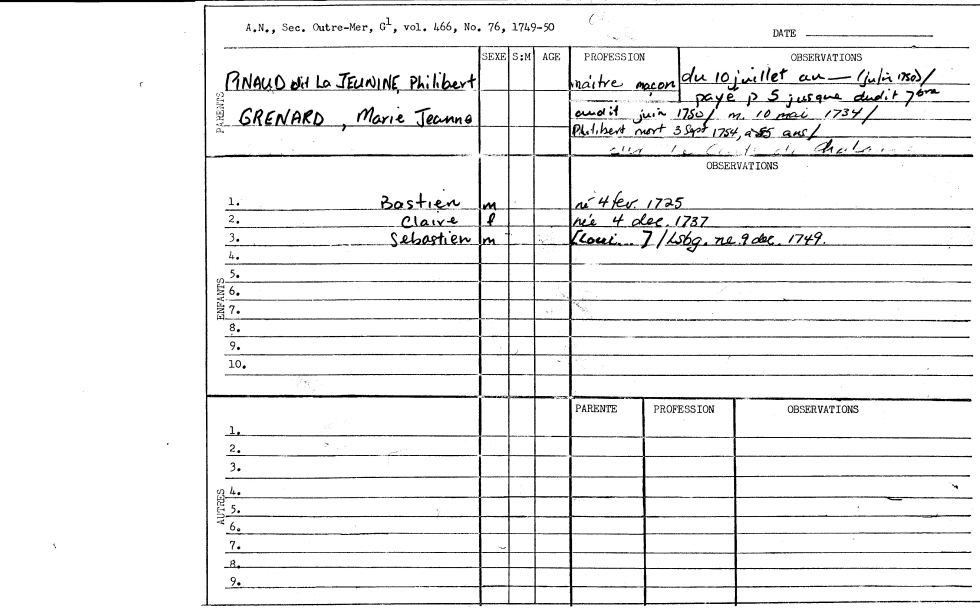 A.N., Sec. Outre-Mer, G1, vol. 466, No. 76, 1749-50
DATE
SEXE S:M AGE PROFESSION OBSERVATIONS
PARENTS
PINAUD dit La JEUNINE, Philibert maître maçon du 10 juillet au — (juin 1750)/
payé p 5 jusque dudit 7bre
GRENARD, Marie Jeanne audit juin 1750/ m. 10 mai 1734/
Philibert mort 3 Sept 1754, à 55 ans/
OBSERVATIONS
ENFANTS
1. Bastien m né 4 fev. 1725
2. Claire f née 4 dec. 1737
3. Sebastien m [Loui...]/Lsbg. ne 9 dec. 1749.
4.
5.
6.
7.
8.
9.
10.
PARENTE PROFESSION OBSERVATIONS
AUTRES
1.
2.
3.
4.
5.
6.
7.
8.
9.